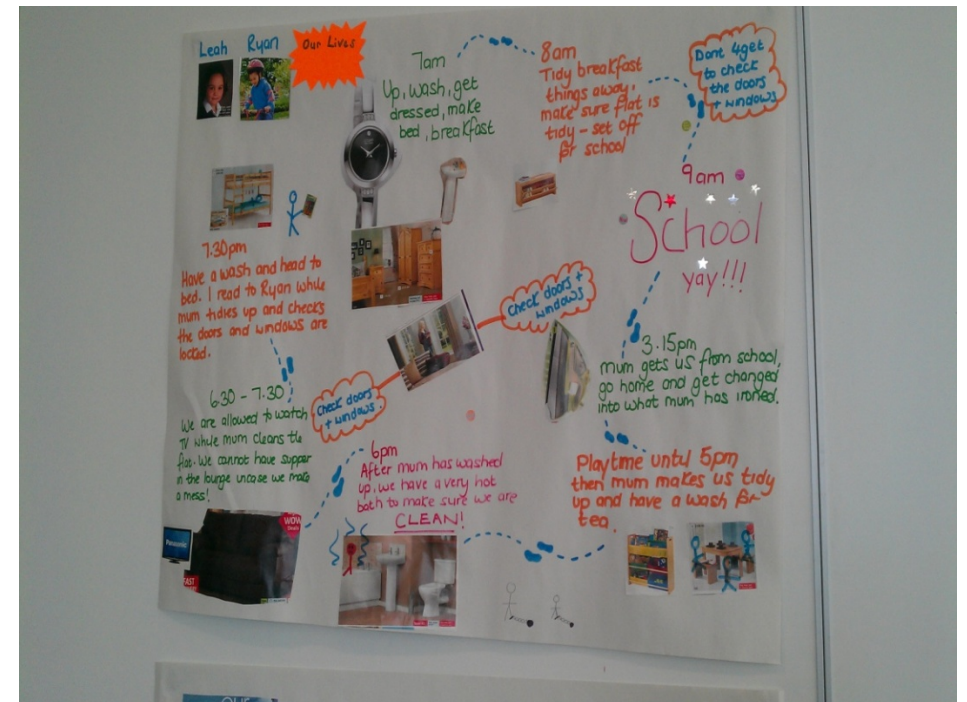 Leah
Ryan
Our Lives
7am
Up, wash, get
dressed, make
bed, breakfast
8am
Tidy breakfast
things away,
make sure flat is
tidy - set off
for school
Dont 4get
to check
the doors
+ windows
9am
School
yay!!!
3.15pm
mum gets us from school,
go home and get changed
into what mum has ironed.
Playtime until 5pm
then mum makes us tidy
up and have a wash for
tea.
6pm
After mum has washed
up, we have a very hot
bath to make sure we are
CLEAN!
6.30 - 7.30
We are allowed to watch
TV while mum cleans the
flat. We cannot have supper
in the lounge uncase we make
a mess!
7.30pm
Have a wash and head to
bed. I read to Ryan while
mum tidies up and checks
the doors and windows are
locked.
Check doors +
windows
Check doors
+ windows.
Panasonic
WOW
FAST